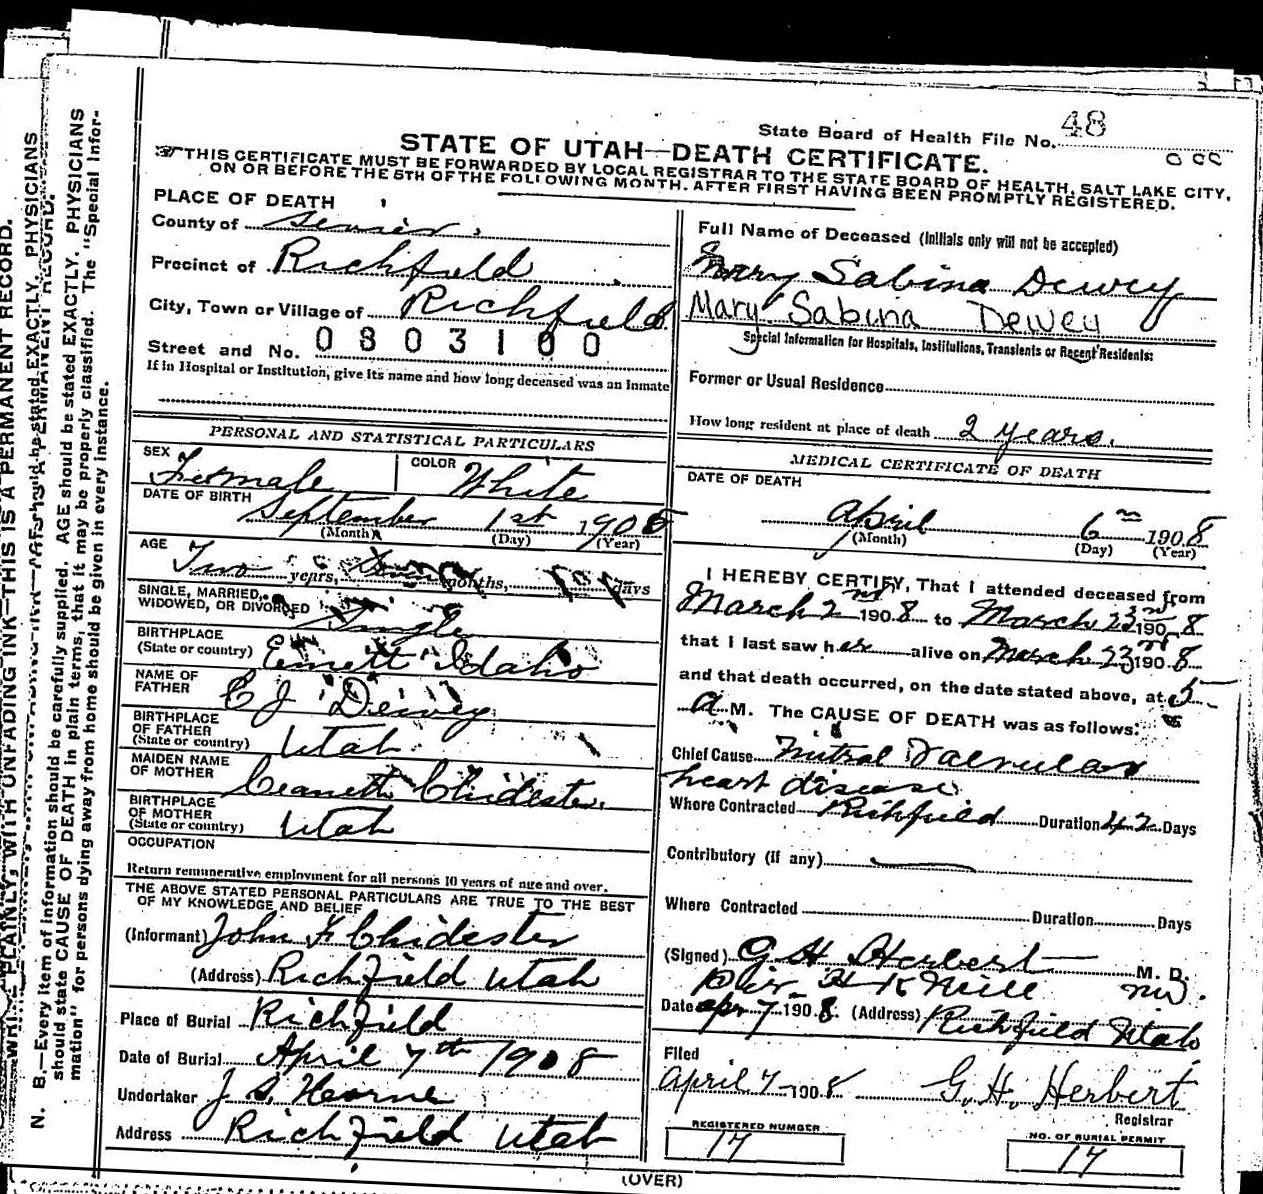 State Board of Health File No. 48
STATE OF UTAH—DEATH CERTIFICATE.
THIS CERTIFICATE MUST BE FORWARDED BY LOCAL REGISTRAR TO THE STATE BOARD OF HEALTH, SALT LAKE CITY,
ON OR BEFORE THE 5TH OF THE FOLLOWING MONTH, AFTER FIRST HAVING BEEN PROMPTLY REGISTERED.
PLACE OF DEATH
County of Sevier.
Precinct of Richfield
City, Town or Village of Richfield
Street and No. 0803100
If in Hospital or Institution, give its name and how long deceased was an Inmate
PERSONAL AND STATISTICAL PARTICULARS
SEX Female COLOR White
DATE OF BIRTH September 1st 1905
(Month) (Day) (Year)
AGE Two years, months, days
SINGLE, MARRIED, WIDOWED, OR DIVORCED Single
BIRTHPLACE
(State or country) Emett Idaho
NAME OF FATHER C J Dewey
BIRTHPLACE OF FATHER
(State or country) Utah
MAIDEN NAME OF MOTHER Chidester
BIRTHPLACE OF MOTHER
(State or country) Utah
OCCUPATION
Return remunerative employment for all persons 10 years of age and over.
THE ABOVE STATED PERSONAL PARTICULARS ARE TRUE TO THE BEST
OF MY KNOWLEDGE AND BELIEF
(Informant) John F Chidester
(Address) Richfield Utah
Place of Burial Richfield
Date of Burial April 7th 1908
Undertaker J S. Horne
Address Richfield Utah
Full Name of Deceased (Initials only will not be accepted)
Mary Sabina Dewey
Mary Sabina Dewey
Special Information for Hospitals, Institutions, Transients or Recent Residents:
Former or Usual Residence
How long resident at place of death 2 years.
MEDICAL CERTIFICATE OF DEATH
DATE OF DEATH
April 6 1908
(Month) (Day) (Year)
I HEREBY CERTIFY, That I attended deceased from
March 2nd 1908 to March 23rd 1908
that I last saw her alive on March 23rd 1908
and that death occurred, on the date stated above, at 5
a M. The CAUSE OF DEATH was as follows:
Chief Cause Mitral Valvular
heart disease
Where Contracted Richfield Duration 42 Days
Contributory (if any)
Where Contracted Duration Days
(Signed) G H Herbert M. D.
H K Neill MD.
Date Apr 7 1908. (Address) Richfield Utah
Filed
April 7 1908 G. H. Herbert
Registrar
REGISTERED NUMBER
17
NO. OF BURIAL PERMIT
17
(OVER)
WRITE PLAINLY, WITH UNFADING INK—THIS IS A PERMANENT RECORD.
N. B.—Every item of information should be carefully supplied. AGE should be stated EXACTLY. PHYSICIANS
should state CAUSE OF DEATH in plain terms, that it may be properly classified. The "Special Infor-
mation" for persons dying away from home should be given in every instance.